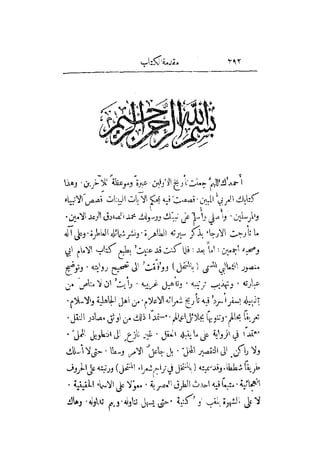 مقدمة الكتاب ٣٩٢
بسم الله الرحمن الرحيم
أحمدك اللهم جعلت تأريخ الأولين عبرةً وموعظةً للآخرين. وهذا
كتابك العربيّ المبين. قصصت فيه بمحكم الآيات البينات قصص الانبياء
والمرسلين. وأصلي وأسلم على نبيك ورسولك محمد الصادق الوعد الامين.
ما تأرجت الارجاء بذكر سيرته الطاهرة. ونشر شمائله العاطرة. وعلى آله
وصحبه أجمعين. أما بعد: فلما كنت قد عنيت بطبع كتاب الامام ابي
منصور الثعالبي المسمى (بالمنتحل) ووفقت الى تصحيح روايته. وتوضيح
عبارته. وتهذيب ترتيبه. وتأهيل غريبه. ورأيت ان لا مناص من
تذييله بسفر أسرد فيه تأريخ شعرائه الاعلام. من اهل الجاهلية والاسلام.
تعريفاً بحالهم. وتنويهاً بجلائل اعمالهم. مستمداً ذلك من اوثق مصادر النقل.
معتمداً في الرواية على ما يقبله العقل. غير نازع الى التطويل المملّ.
ولا راكن الى التقصير المخلّ. بل جاعل الامر وسطا. حتى لا أسلك
طريقاً شططا. وقد سميته (بالمنتحل في تراجم شعراء المنتحل) ورتبته على الحروف
الهجائية. متبعاً فيه احدث الطرق العصرية. معولا على الاسماء الحقيقية.
لا على الشهرة بلقب او كنية. حتى يسهل تناوله. ويتم تداوله. وهاك